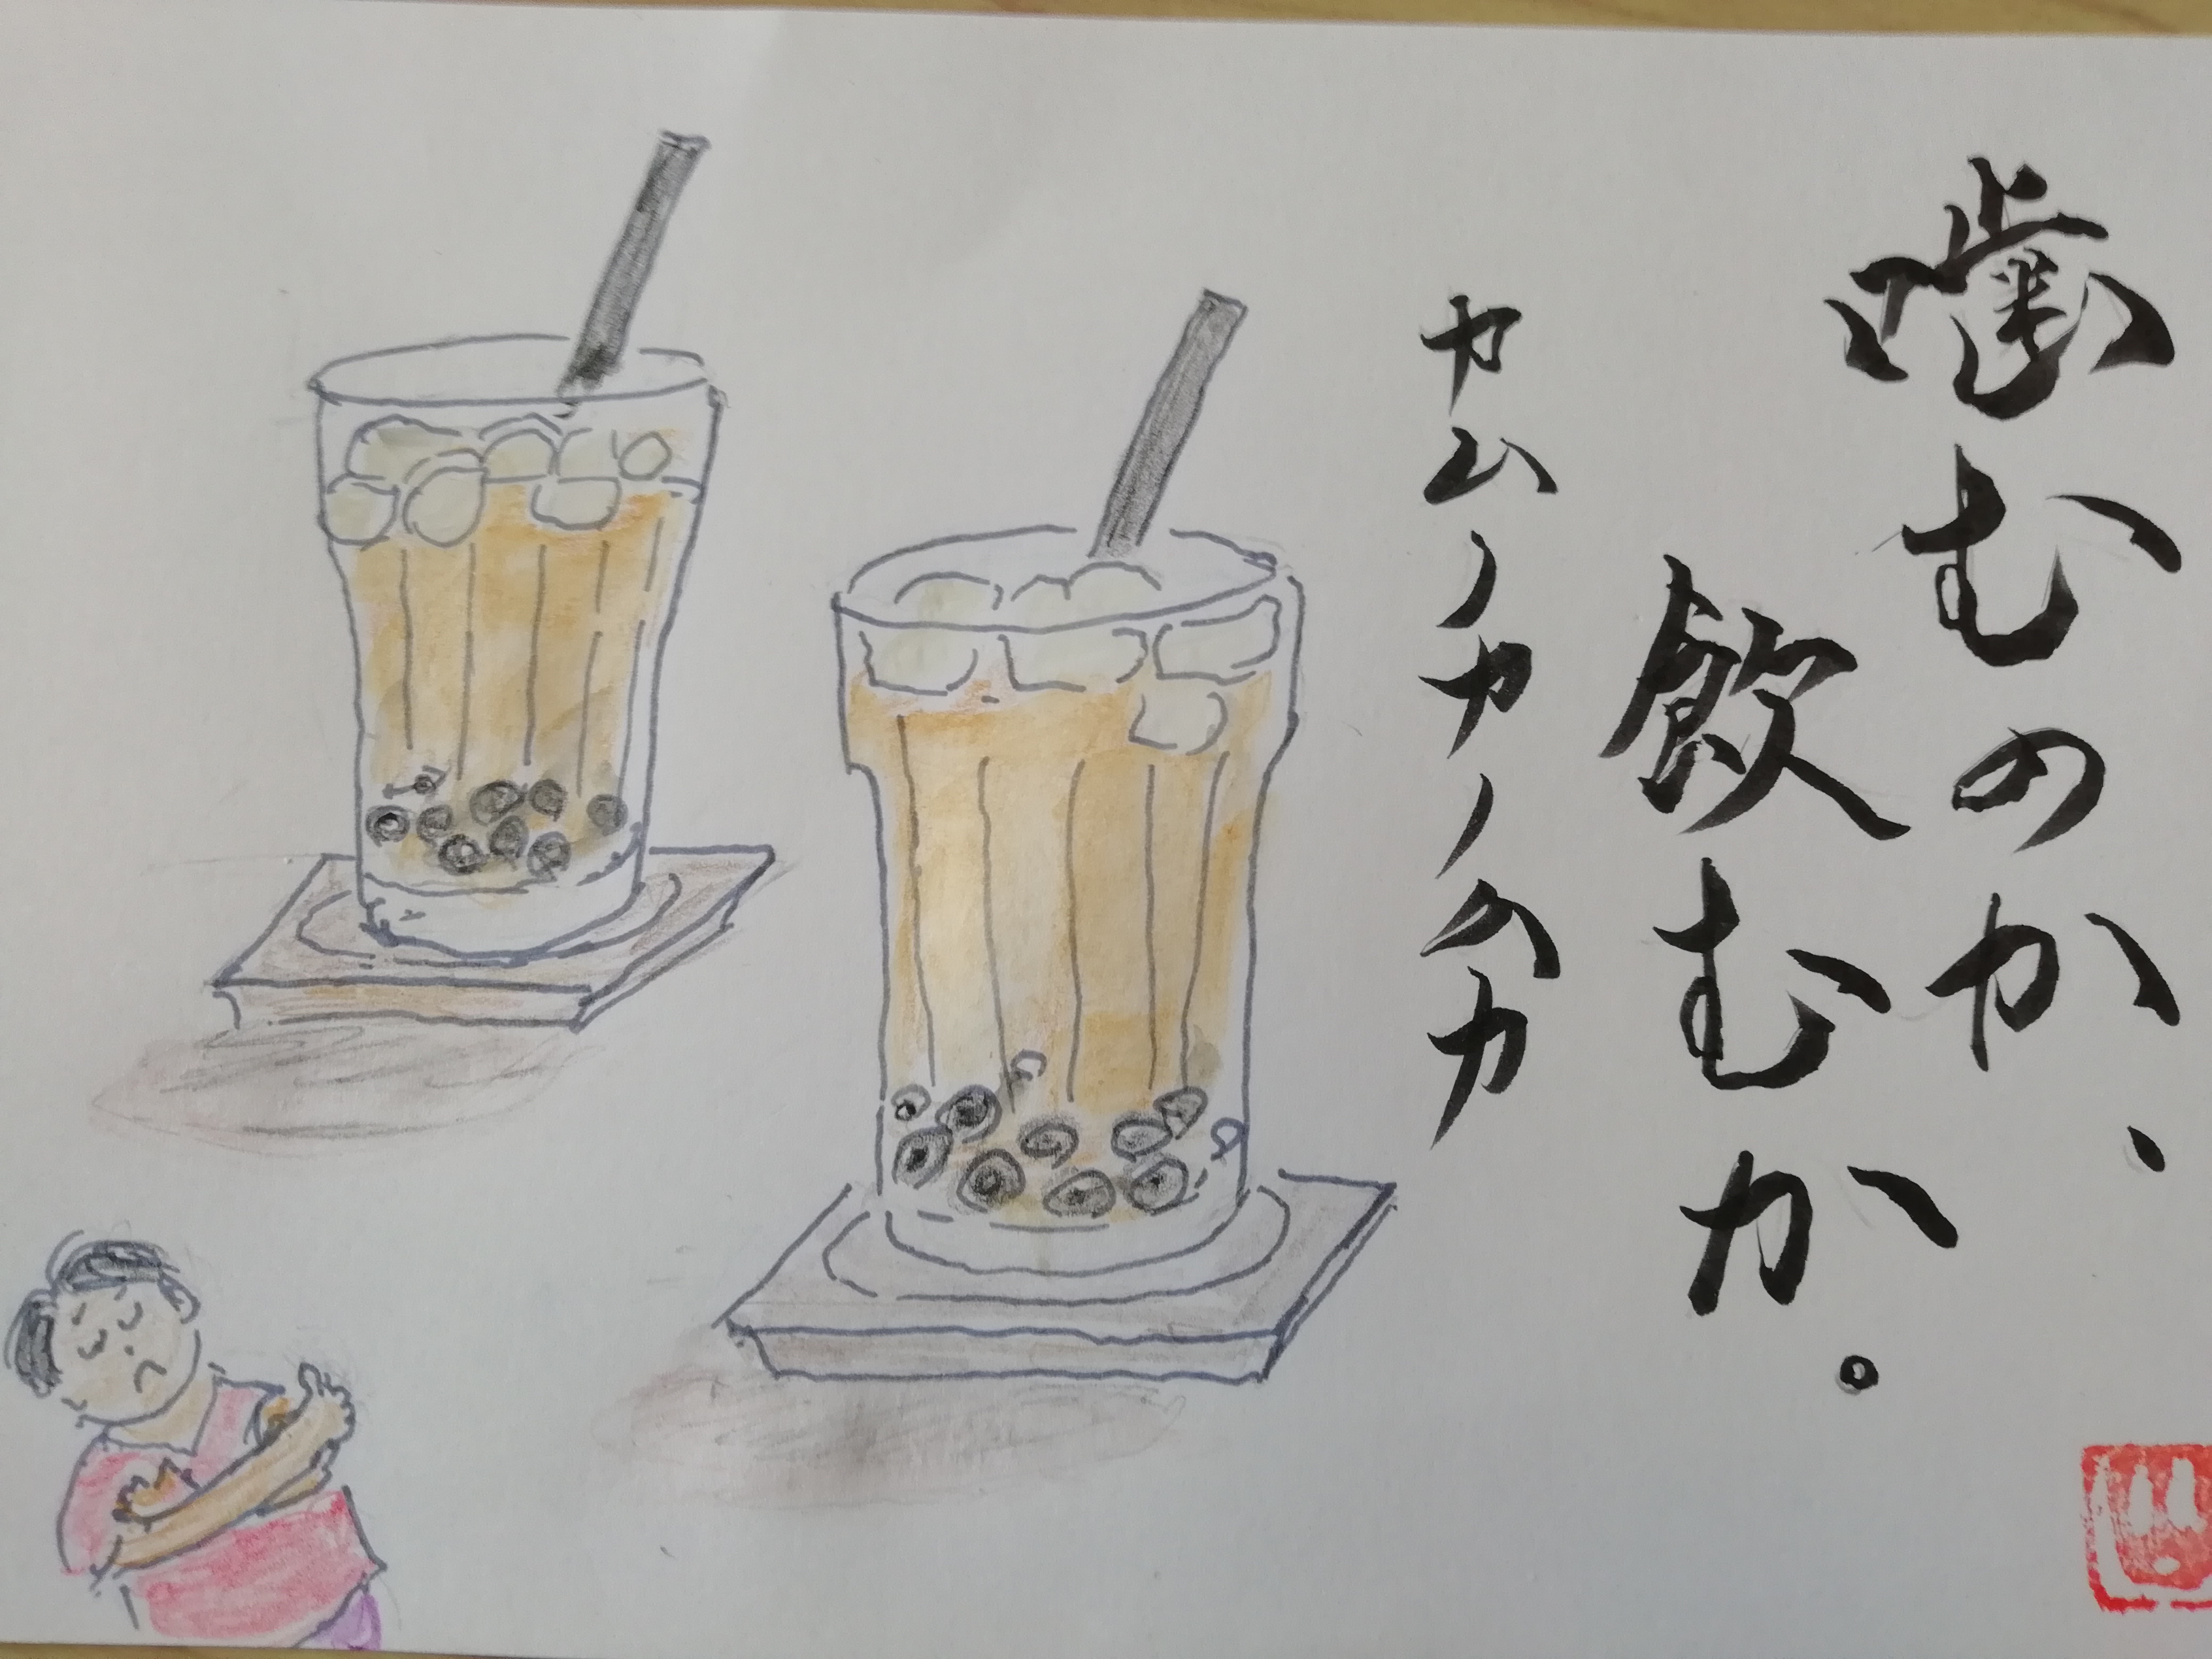 噛むのか、
飲むか。
カムノカノムカ